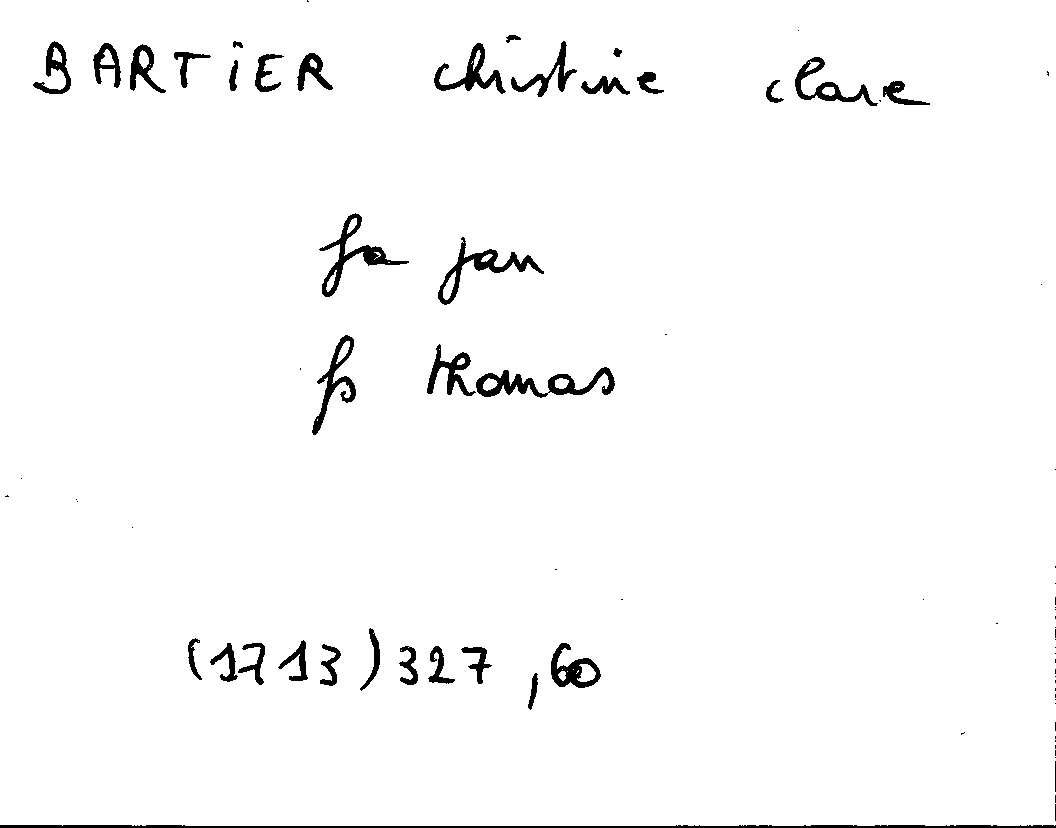 BARTIER christine clare
fa jan
fs thomas
(1713) 327, 60